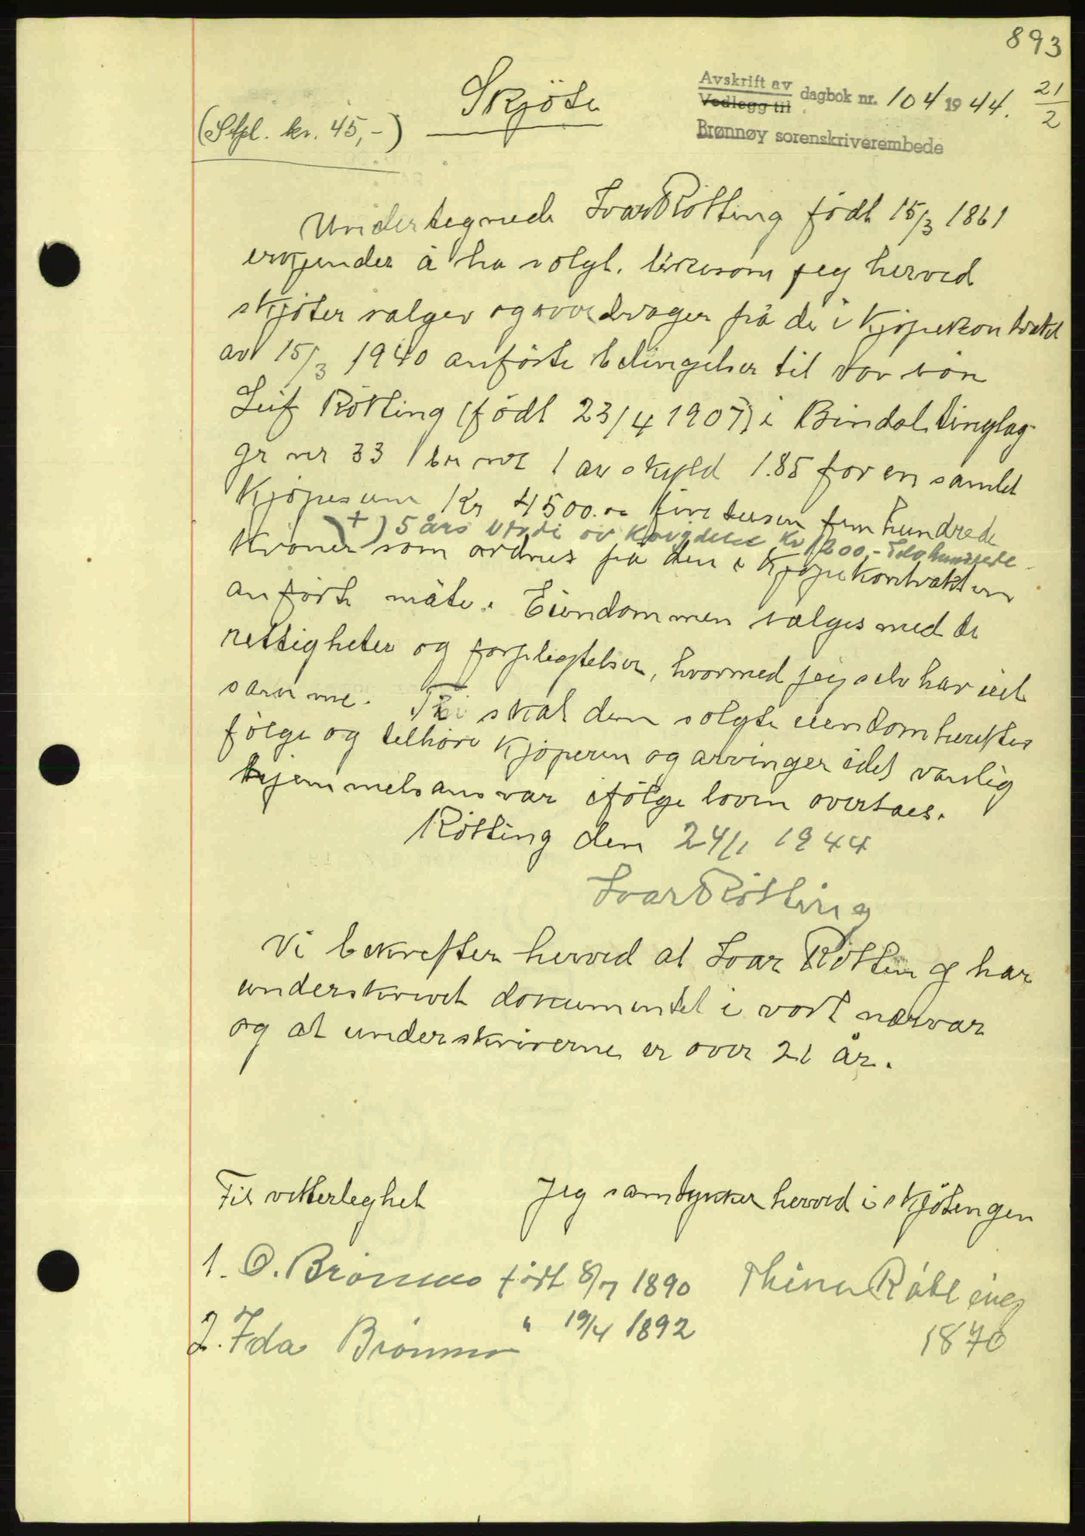 893
Skjøte
Avskrift av
Vedlegg til dagbok nr. 104 1944. 21/2
Brønnøy sorenskriverembede
(Stpl. kr. 45,-)
Undertegnede Ivar Røtting født 15/3 1861
erkjender å ha solgt, likesom jeg herved
skjøter sælger og overdrager på de i kjøpekontrakt
av 15/3 1940 anførte betingelser til vor søn
Leif Røtting (født 23/4 1907) i Bindal tinglag
gr nr 33 br nr 1 av skyld 1.85 for en samlet
kjøpesum Kr 4500.00 fire tusen fem hundrede
+) 5 års verdi av Kr 1200,-
kroner som ordnes på den i kjøpekontrakten
anførte måte. Eiendommen sælges med de
rettigheter og forpligtelser, hvormed jeg selv har eiet
samme. Thi skal den solgte eiendom herefter
følge og tilhøre kjøperen og arvinger idet vanlig
hjemmelsansvar ifølge loven overtaes.
Røtting den 24/1 1944
Ivar Røtting
Vi bekrefter herved at Ivar Røtting har
underskrevet dokumentet i vort nærvær
og at underskriverne er over 21 år.
Til vitterleghet Jeg samtykker herved i skjøtingen
1. O. Brønmo født 8/7 1890 Thina Røtting
2. Ida Brønmo " 19/4 1892 1870